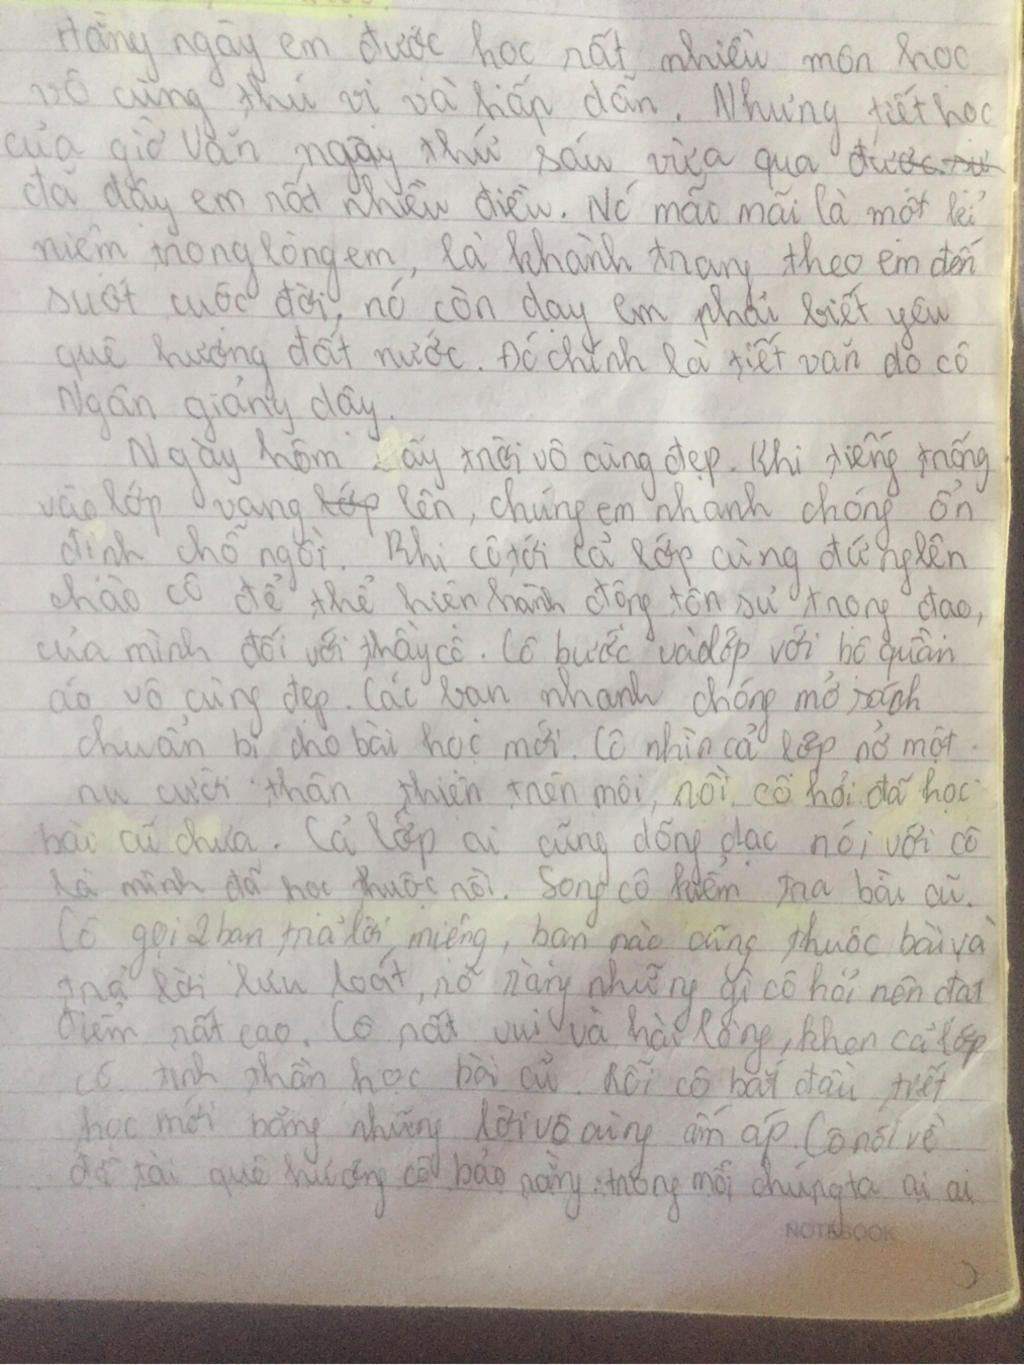 Hằng ngày em được học rất nhiều môn học
vô cùng thú vị và hấp dẫn. Nhưng tiết học
của giờ Văn ngày thứ sáu vừa qua được
đã dạy em rất nhiều điều. Nó mãi mãi là một kỉ
niệm trong lòng em, là khành trang theo em đến
suốt cuộc đời, nó còn dạy em phải biết yêu
quê hương đất nước. Đó chính là tiết văn do cô
Ngân giảng dây.
Ngày hôm ấy trời vô cùng đẹp. Khi tiếng trống
vào lớp vang lớp lên, chúng em nhanh chóng ổn
định chỗ ngồi. Khi cô tới cả lớp cùng đứng lên
chào cô để thể hiện hành động tôn sư trong đạo,
của mình đối với thầy cô. Cô bước vào lớp với bộ quần
áo vô cùng đẹp. Các bạn nhanh chóng mở sách
chuẩn bị cho bài học mới. Cô nhìn cả lớp nở một
nụ cười thân thiện trên môi, rồi cô hỏi đã học
bài cũ chưa. Cả lớp ai cũng dõng dạc nói với cô
là mình đã học thuộc rồi. Song cô kiểm tra bài cũ.
Cô gọi 2 bạn trả lời miệng, bạn nào cũng thuộc bài và
trả lời lưu loát, rõ ràng những gì cô hỏi nên đạt
điểm rất cao. Cô rất vui và hài lòng, khen cả lớp
có tinh thần học bài cũ. Rồi cô bắt đầu tiết
học mới bằng những lời vô cùng ấm áp. Cô nói về
đề tài quê hương cô bảo rằng: trong mỗi chúng ta ai ai
NOTEBOOK